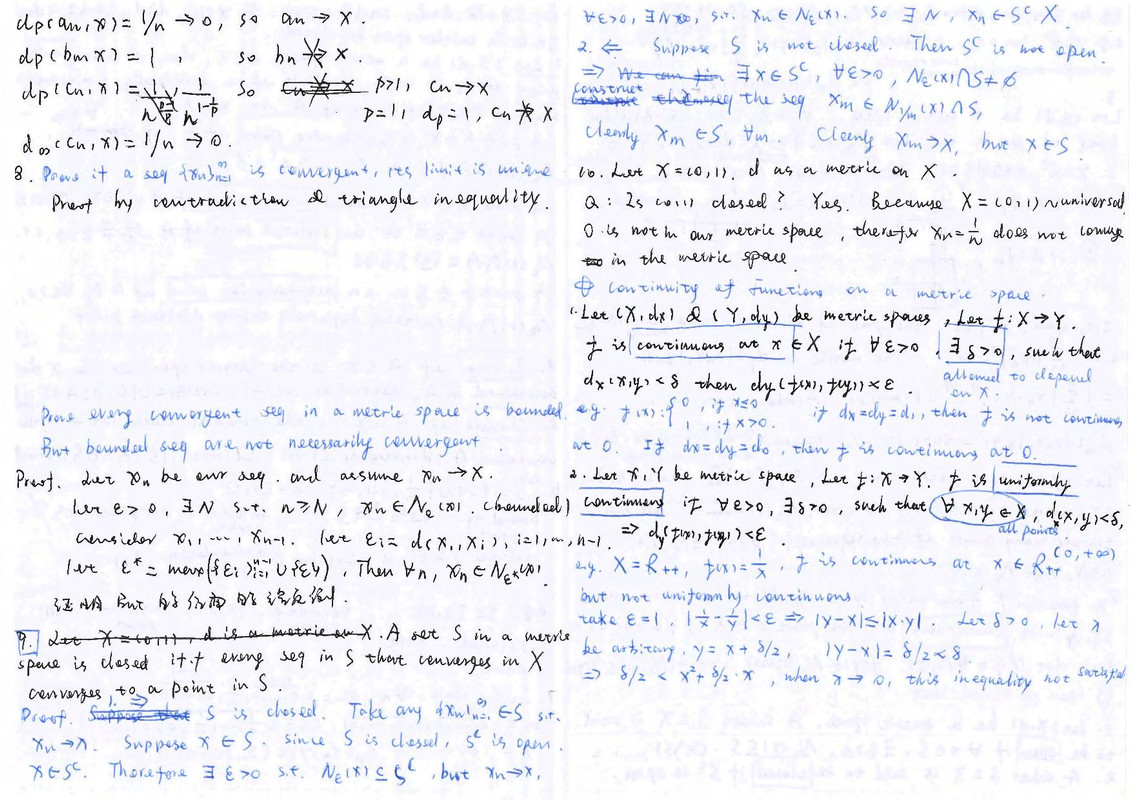 dp(an, x) = 1/n → 0, so an → x
dp(bn, x) = 1, so bn ↛ x
dp(cn, x) = 1/n^{1-1/p} so p>1, cn → x
p=1, dp=1, cn ↛ x
d∞(cn, x) = 1/n → 0.
8. Prove if a seq {xn}n=1^∞ is convergent, its limit is unique
Proof by contradiction & triangle inequality.
Prove every convergent seq in a metric space is bounded.
But bounded seq are not necessarily convergent
Proof. Let xn be our seq. and assume xn → X.
Let ε > 0, ∃ N s.t. n ≥ N, xn ∈ Nε(x). (bounded)
Consider x1, ..., xn-1. Let εi = d(x, xi), i=1, ..., n-1.
let ε* = max({εi}i=1^{n-1} ∪ {ε}), Then ∀n, xn ∈ Nε*(x).
证明 But 的
9. Let X = (0,1), d is a metric on X. A set S in a metric
space is closed iff every seq in S that converges in X
converges to a point in S.
Proof. 1. ⇒ Suppose that S is closed. Take any {xn}n=1^∞ ∈ S s.t.
xn → x. Suppose x ∈ S. since S is closed, S^c is open.
x ∈ S^c. Therefore ∃ ε > 0 s.t. Nε(x) ⊆ S^c, but xn → x,
∀ε>0, ∃N, s.t. xn ∈ Nε(x). so ∃ N, xn ∈ S^c X
2. ⇐ Suppose S is not closed. Then S^c is not open.
⇒ We can fin ∃ x ∈ S^c, ∀ε>0, Nε(x) ∩ S ≠ ∅
construct the seq xm ∈ N1/m(x) ∩ S,
Clearly xm ∈ S, ∀m. Clearly xm → x, but x ∉ S
10. Let X = (0,1), d as a metric on X
Q: Is (0,1) closed? Yes. Because X = (0,1) ~ universal
0 is not in our metric space, therefor xn = 1/n does not converge
in the metric space.
continuity of functions on a metric space.
1. Let (X, dx) & (Y, dy) be metric spaces, Let f: X → Y.
f is continuous at x ∈ X if ∀ε>0 ∃ δ>0, such that
dx(x,y) < δ then dy(f(x), f(y)) < ε.
allowed to depend
on x
e.g. f(x): { 0, if x≤0
1, if x>0. if dx=dy=d1, then f is not continuous
at 0. If dx=dy=d0, then f is continuous at 0.
2. Let X, Y be metric space, Let f: X → Y. f is uniformly
continuous if ∀ε>0, ∃δ>0, such that ∀ x,y ∈ X, dx(x,y)<δ,
all points
⇒ dy(f(x), f(y)) < ε.
e.g. X = R++, f(x) = 1/x, f is continuous at x ∈ R++ (0, +∞)
but not uniformly continuous
take ε=1. |1/x - 1/y| < ε ⇒ |y-x| ≤ |x·y|. Let δ>0, let x
be arbitrary, y = x + δ/2, |y-x| = δ/2 < δ
⇒ δ/2 < x² + δ/2·x, when x → 0, this inequality not satisfied